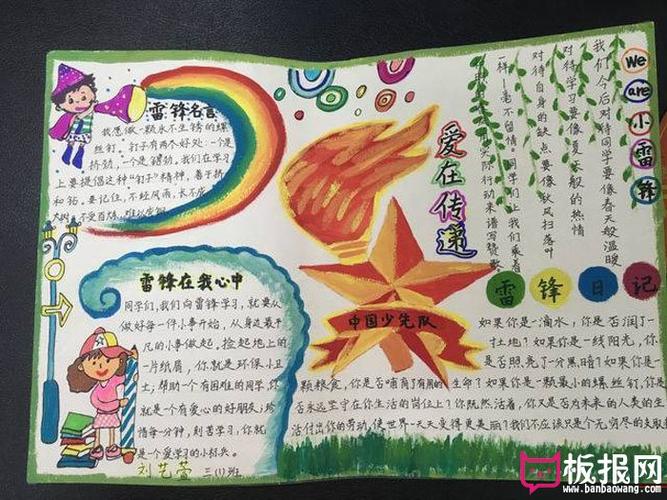 雷锋名言
我愿做一颗永不生锈的螺
丝钉。钉子有两个好处:一个是
挤劲,一个是钻劲,我们在学习
上要提倡这种"钉子"精神,善于挤
和钻,要记住,不经风雨,长不成
大树,不受百炼,难以成钢
雷锋在我心中
同学们,我们向雷锋学习,就要从
做好每一件小事开始,从身边最平
凡的小事做起。捡起地上的
一片纸屑,你就是环保小卫
士;帮助一个有困难的同学,你
就是一个有爱心的好朋友;珍
惜每一分钟,刻苦学习,你就
是一个爱学习的小标兵
刘艺萱 三(1)班
爱在传递
中国少先队
We
are
小
雷
锋
我们今后对待同学要像春天般温暖
对待学习要像夏天般的热情
对待自身的缺点要像秋风扫落叶
一样一毫不留情,同学们让我们乘着
实际行动来谱写赞歌
雷锋日记
如果你是一滴水,你是否润了一
寸土地?如果你是一线阳光,你
是否照亮了一分黑暗?如果你是一
颗粮食,你是否哺育了有用的生命?如果你是一颗最小的螺丝钉,你是
否永远坚守在你生活的岗位上?你既然活着,你又是否为未来的人类的生
活付出你的劳动,使世界一天天变得更美丽?我们不应该只是个无穷尽的支取
板报网
www.banbaowang.com